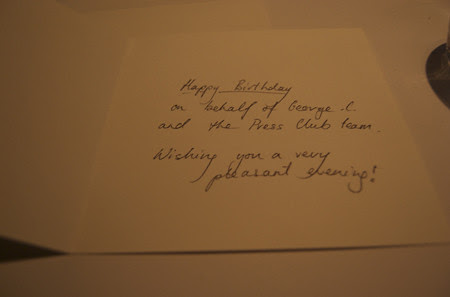 Happy Birthday
on behalf of George C.
and the Press Club team.
Wishing you a very
pleasant evening!